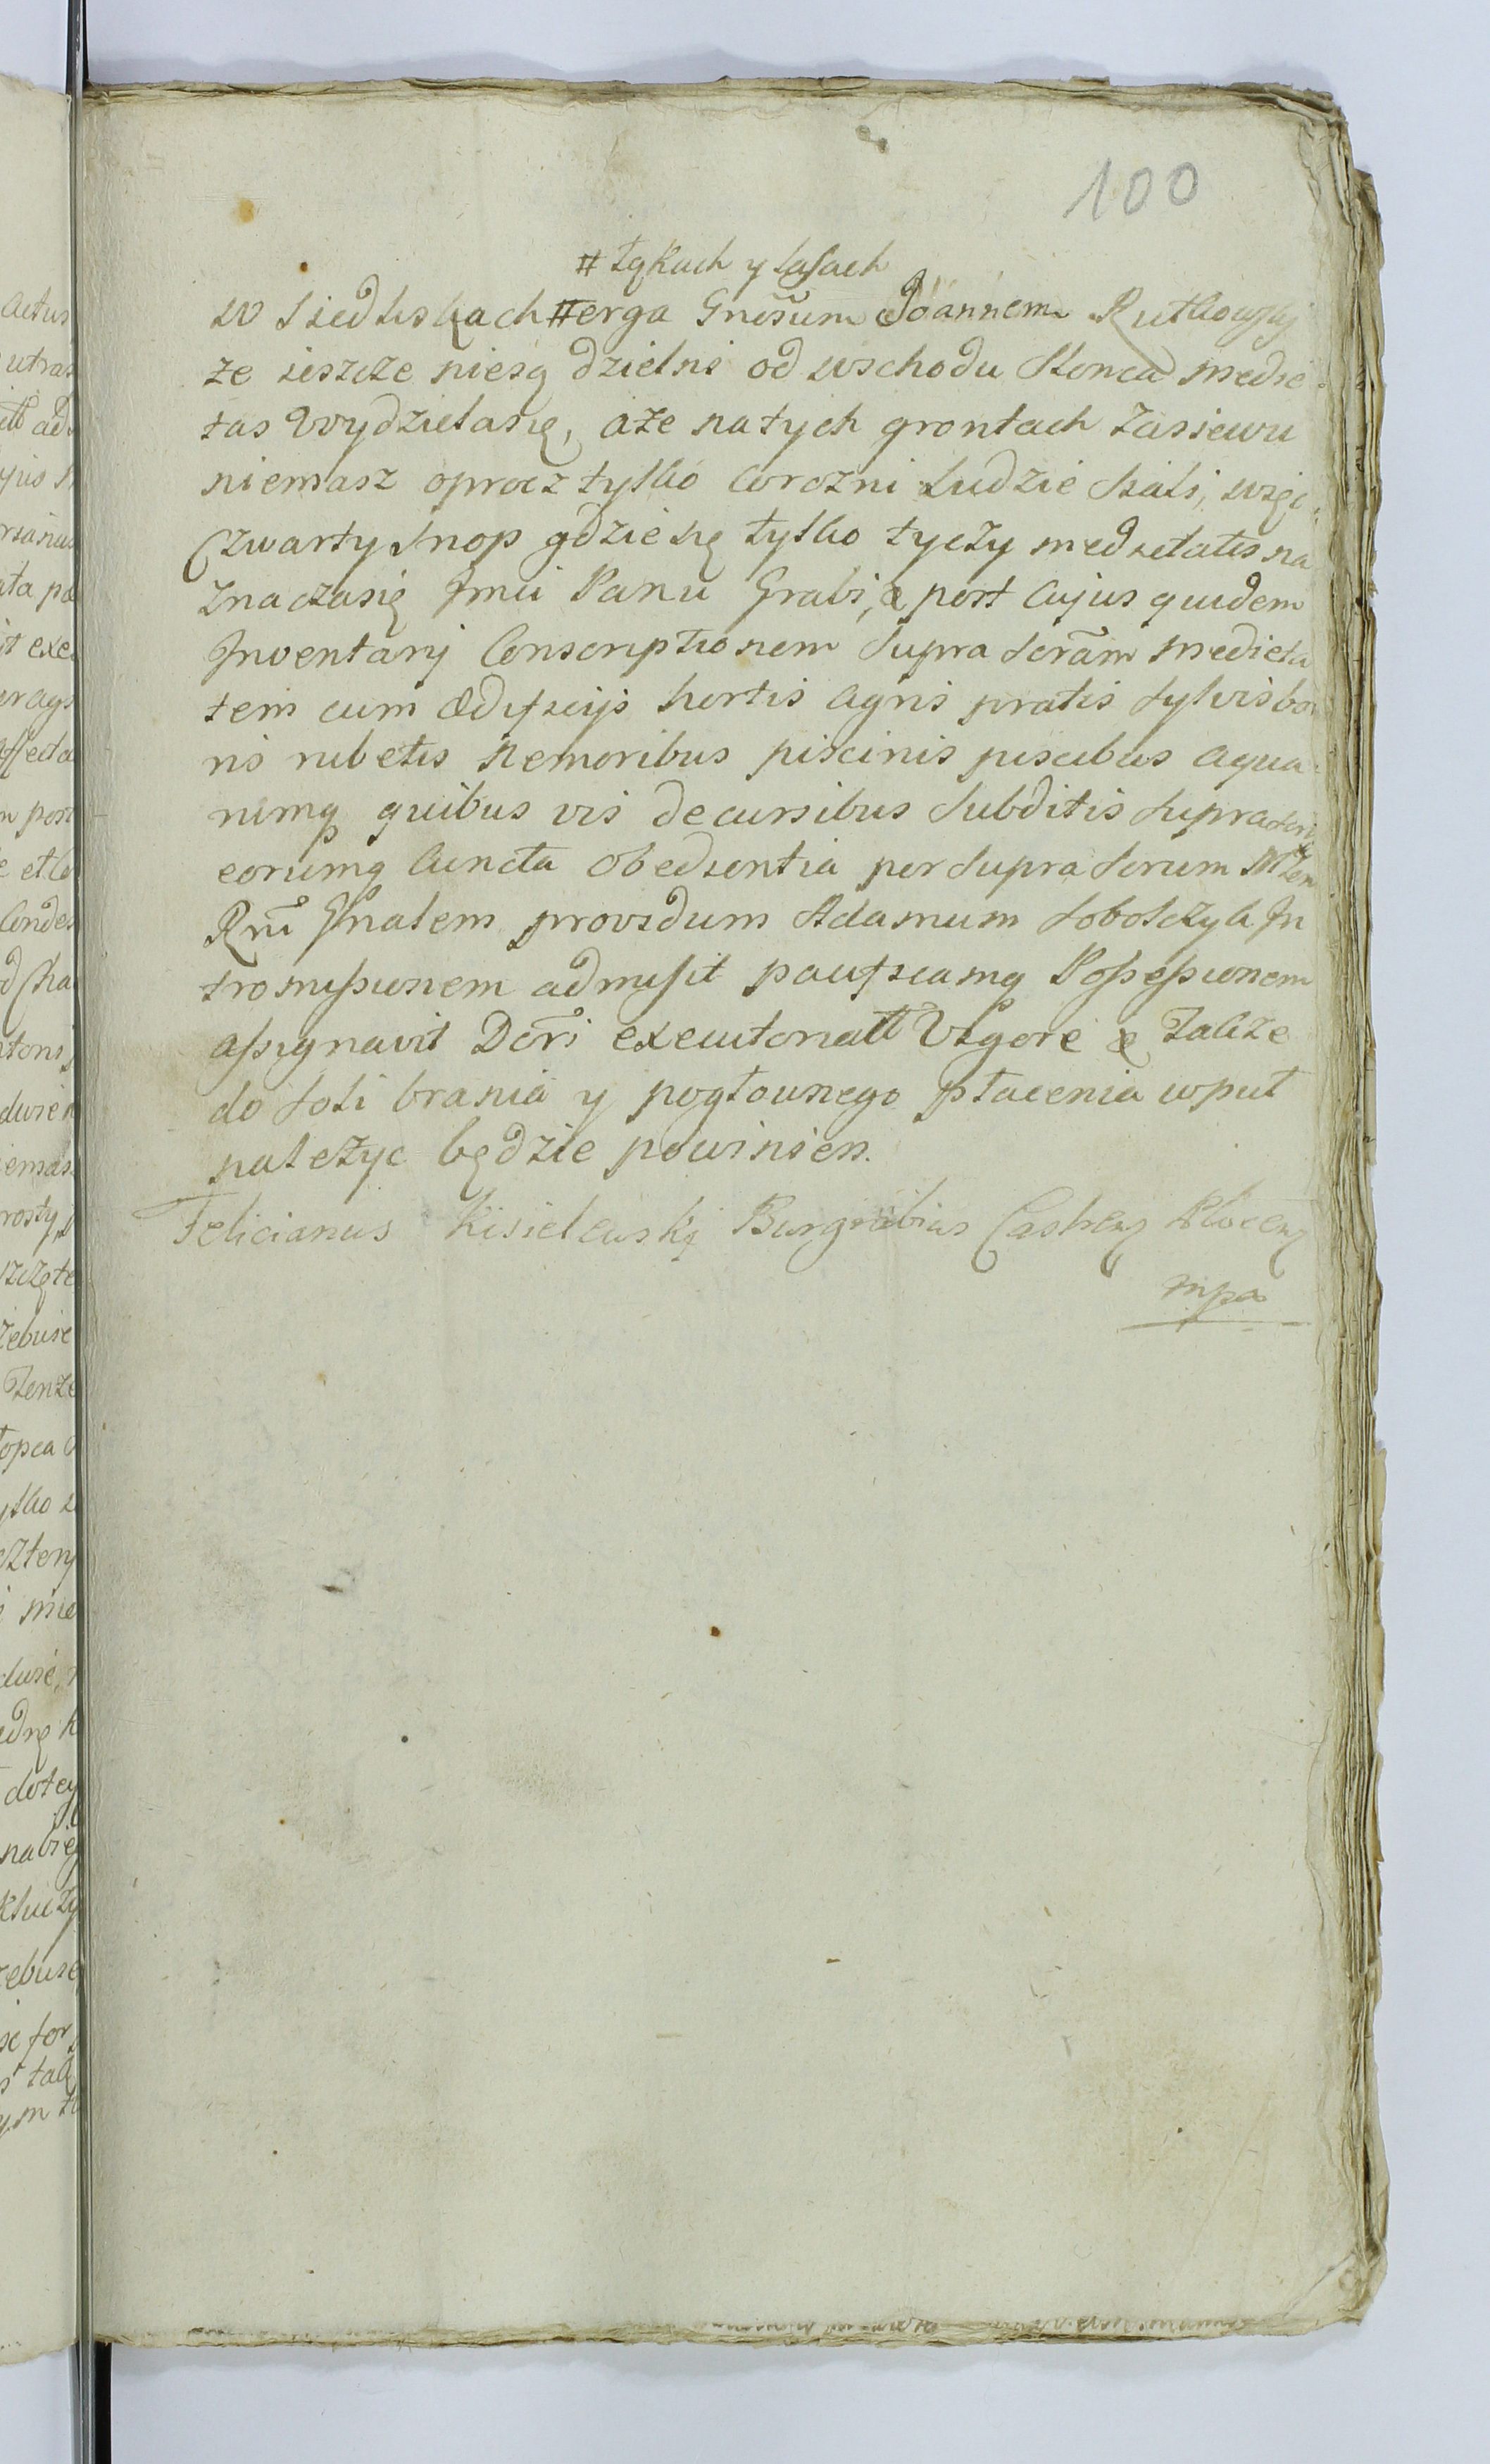 100
# łąkach y lasach
w Siedliskach # erga Gnosum Joannem Rutkowskj
że ieszcze niesą dzielni od wschodu słonca medie
tas Wydzielasię, aże natych grontach zasiewu
niemasz oprocz tylko corozni Ludzie siali, więc
Czwarty snop gdzie się tylko tyczy medietatis na
znaczasię Jmci Panu Grabi, & post cujus quidem
Inventarij Conscriptionem supra scram medieta
tem cum Ædificijs hortis agris pratis sylvis bo
ris rubetis nemoribus piscinis piscibus aqua
rumq quibus vis decursibus subditis supra scri
eorumq cuncta obedientia per supra scrum Mten
Rni Gnalem providum Adamum Sobotczyk In
tromissionem admisit pacificamq Possessionem
assignavit Dcri executoriall Vigore & takze
do soli brania y pogłownego płacenia wpuł
należyc będzie powinien.
Felicianus Kisielewskj Burgrabius Castren Plocen
mpa
Actus
utras
ata pa
it exe
er agr
n post
Condes
emas
rosty
rzebuie
Tenze
ylko
cztery
dotey